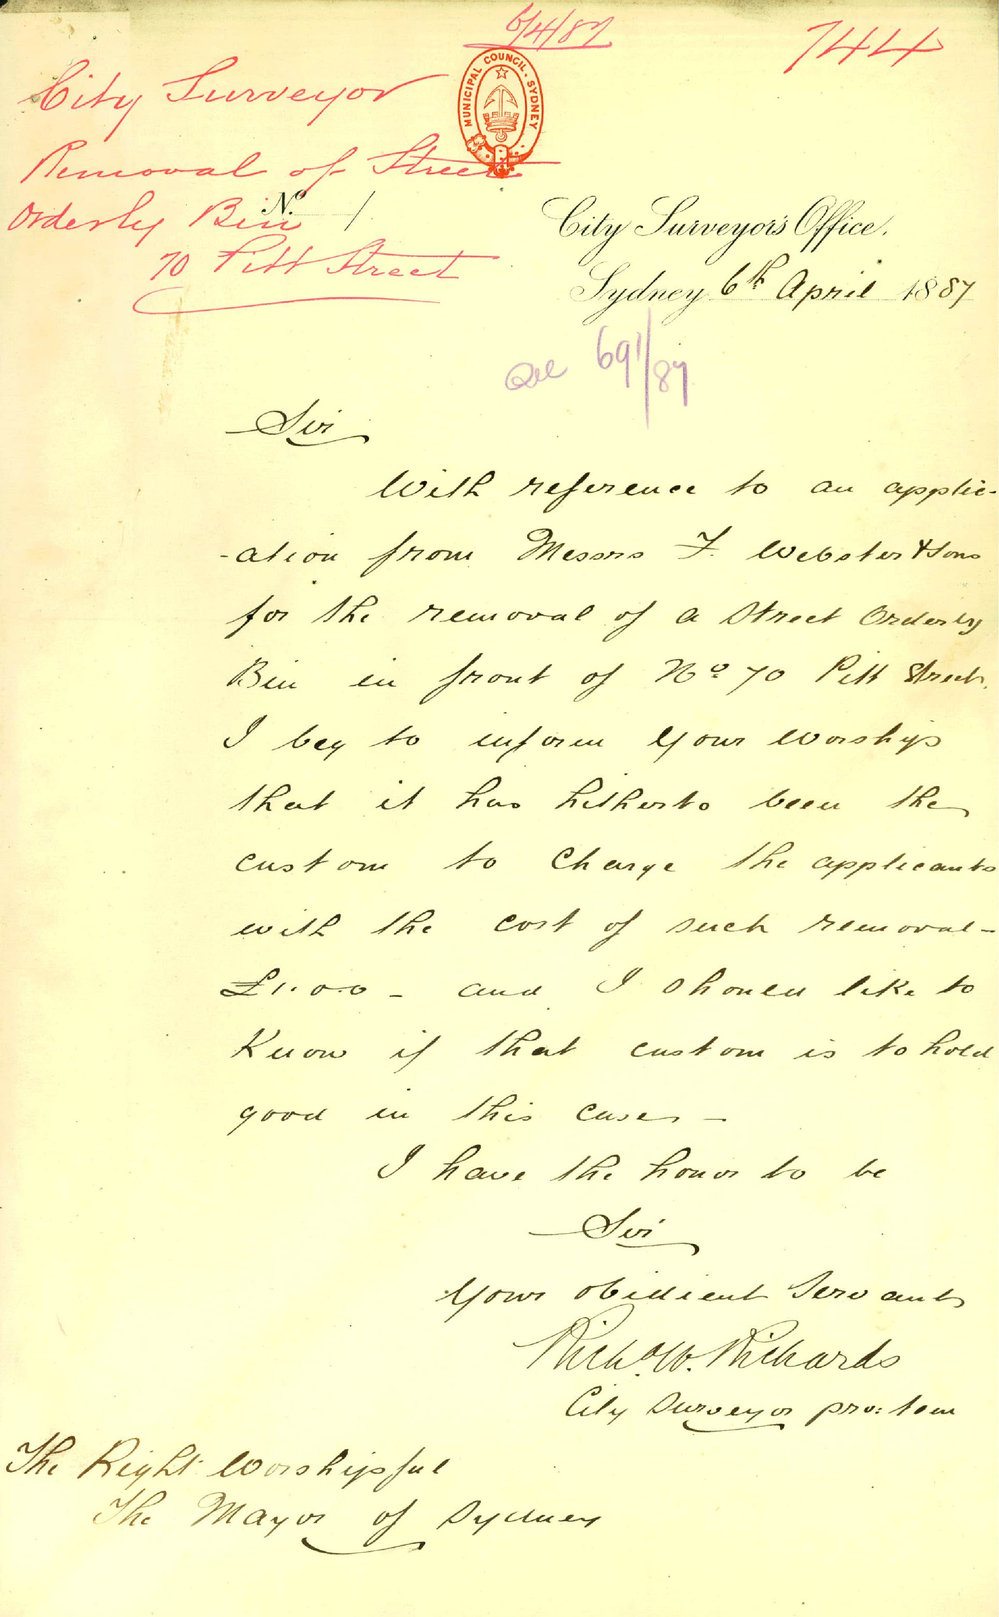 6/4/87
744
MUNICIPAL COUNCIL. SYDNEY
City Surveyor
Removal of Street
Orderly Bin
70 Pitt Street
No. 1
City Surveyor's Office,
Sydney 6th April 1887
691/87
Sir
With reference to an applic-
-ation from Messrs F. Webster & Sons
for the removal of a Street Orderly
Bin in front of No 70 Pitt Street.
I beg to inform Your Worship
that it has hitherto been the
custom to charge the applicants
with the cost of such removal -
£1.0.0 - and I should like to
know if that custom is to hold
good in this case -
I have the honor to be
Sir
Your obidient Servant
Richd. W. Richards
City Surveyor pro: tem
The Right Worshipful
The Mayor of Sydney